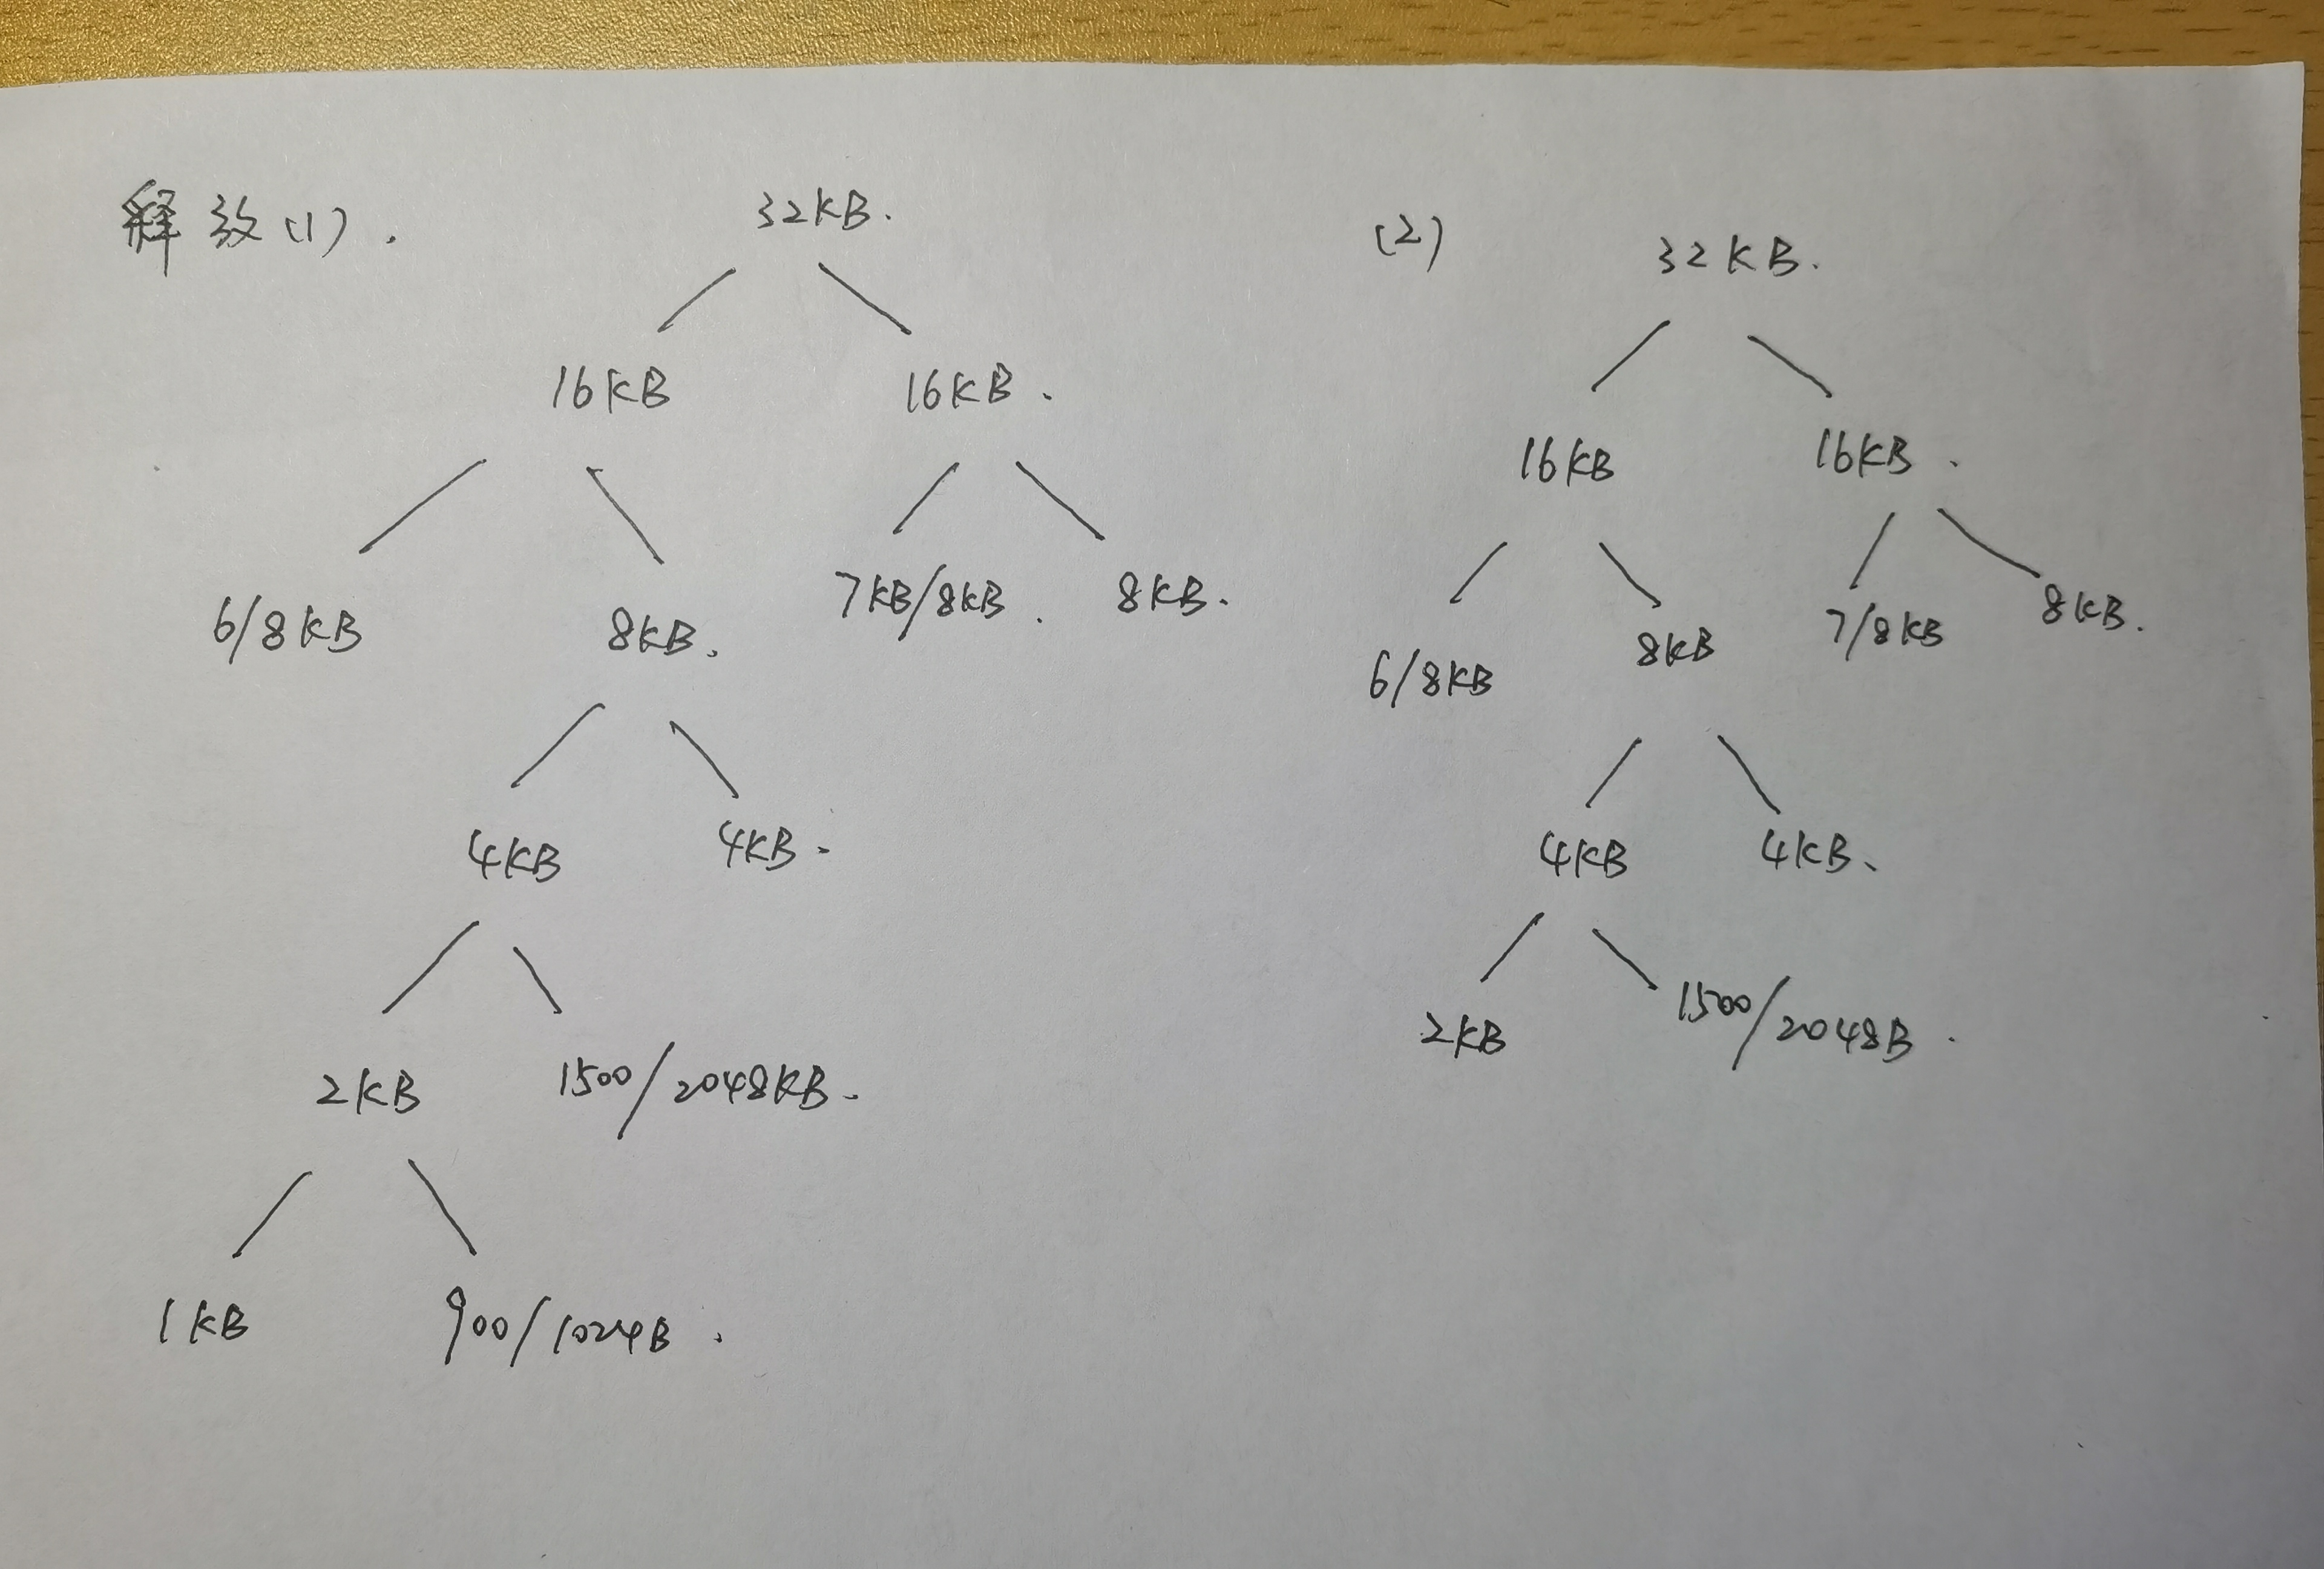 释放(1).
32KB.
16KB 16KB.
6/8KB 8KB. 7KB/8KB. 8KB.
4KB 4KB.
2KB 1500/2048KB.
1KB 900/1024B.
(2) 32KB.
16KB 16KB.
6/8KB 8KB 7/8KB 8KB.
4KB 4KB.
2KB 1500/2048B.